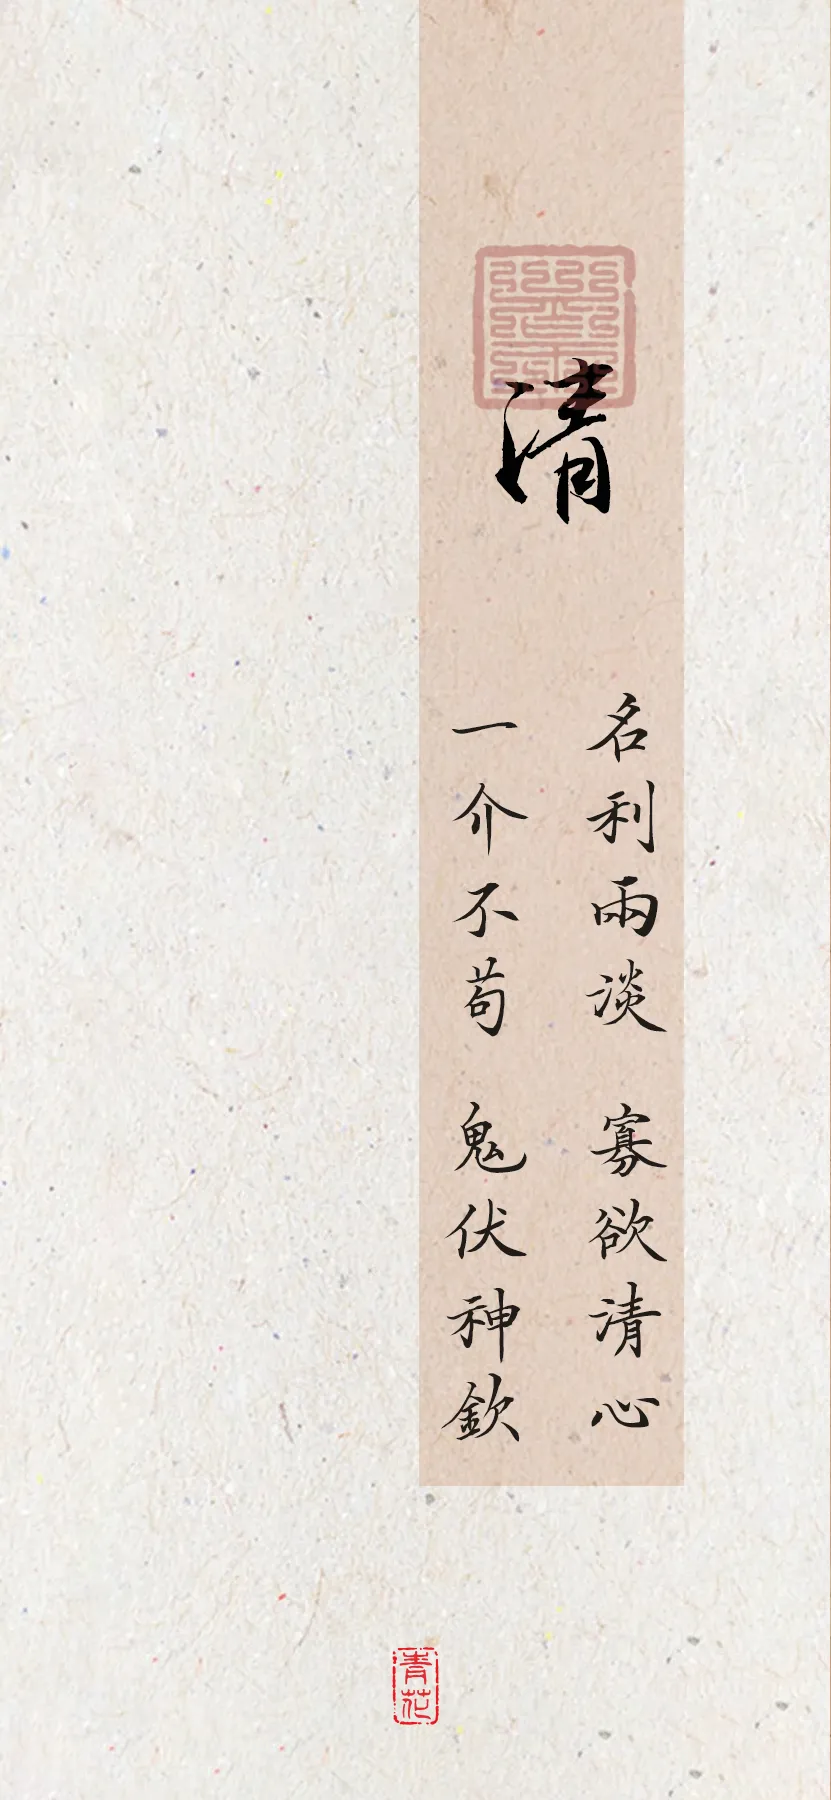 清
名利兩淡 寡欲清心
一介不苟 鬼伏神欽
青花